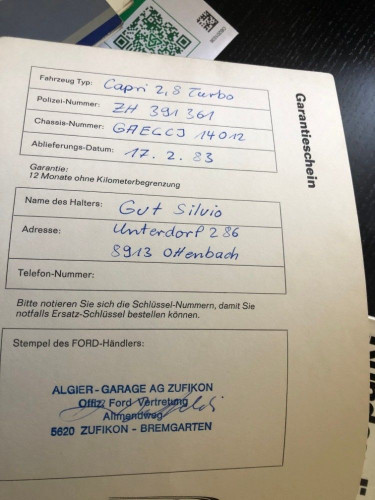 Garantieschein
Fahrzeug Typ: Capri 2,8 Turbo
Polizei-Nummer: ZH 391361
Chassis-Nummer: GAECCJ 14012
Ablieferungs-Datum: 17. 2. 83
Garantie:
12 Monate ohne Kilometerbegrenzung
Name des Halters: Gut Silvio
Adresse: Unterdorf 286
8913 Ottenbach
Telefon-Nummer:
Bitte notieren Sie sich die Schlüssel-Nummern, damit Sie
notfalls Ersatz-Schlüssel bestellen können.
Stempel des FORD-Händlers:
ALGIER-GARAGE AG ZUFIKON
Offiz. Ford Vertretung
Allmendweg
5620 ZUFIKON - BREMGARTEN